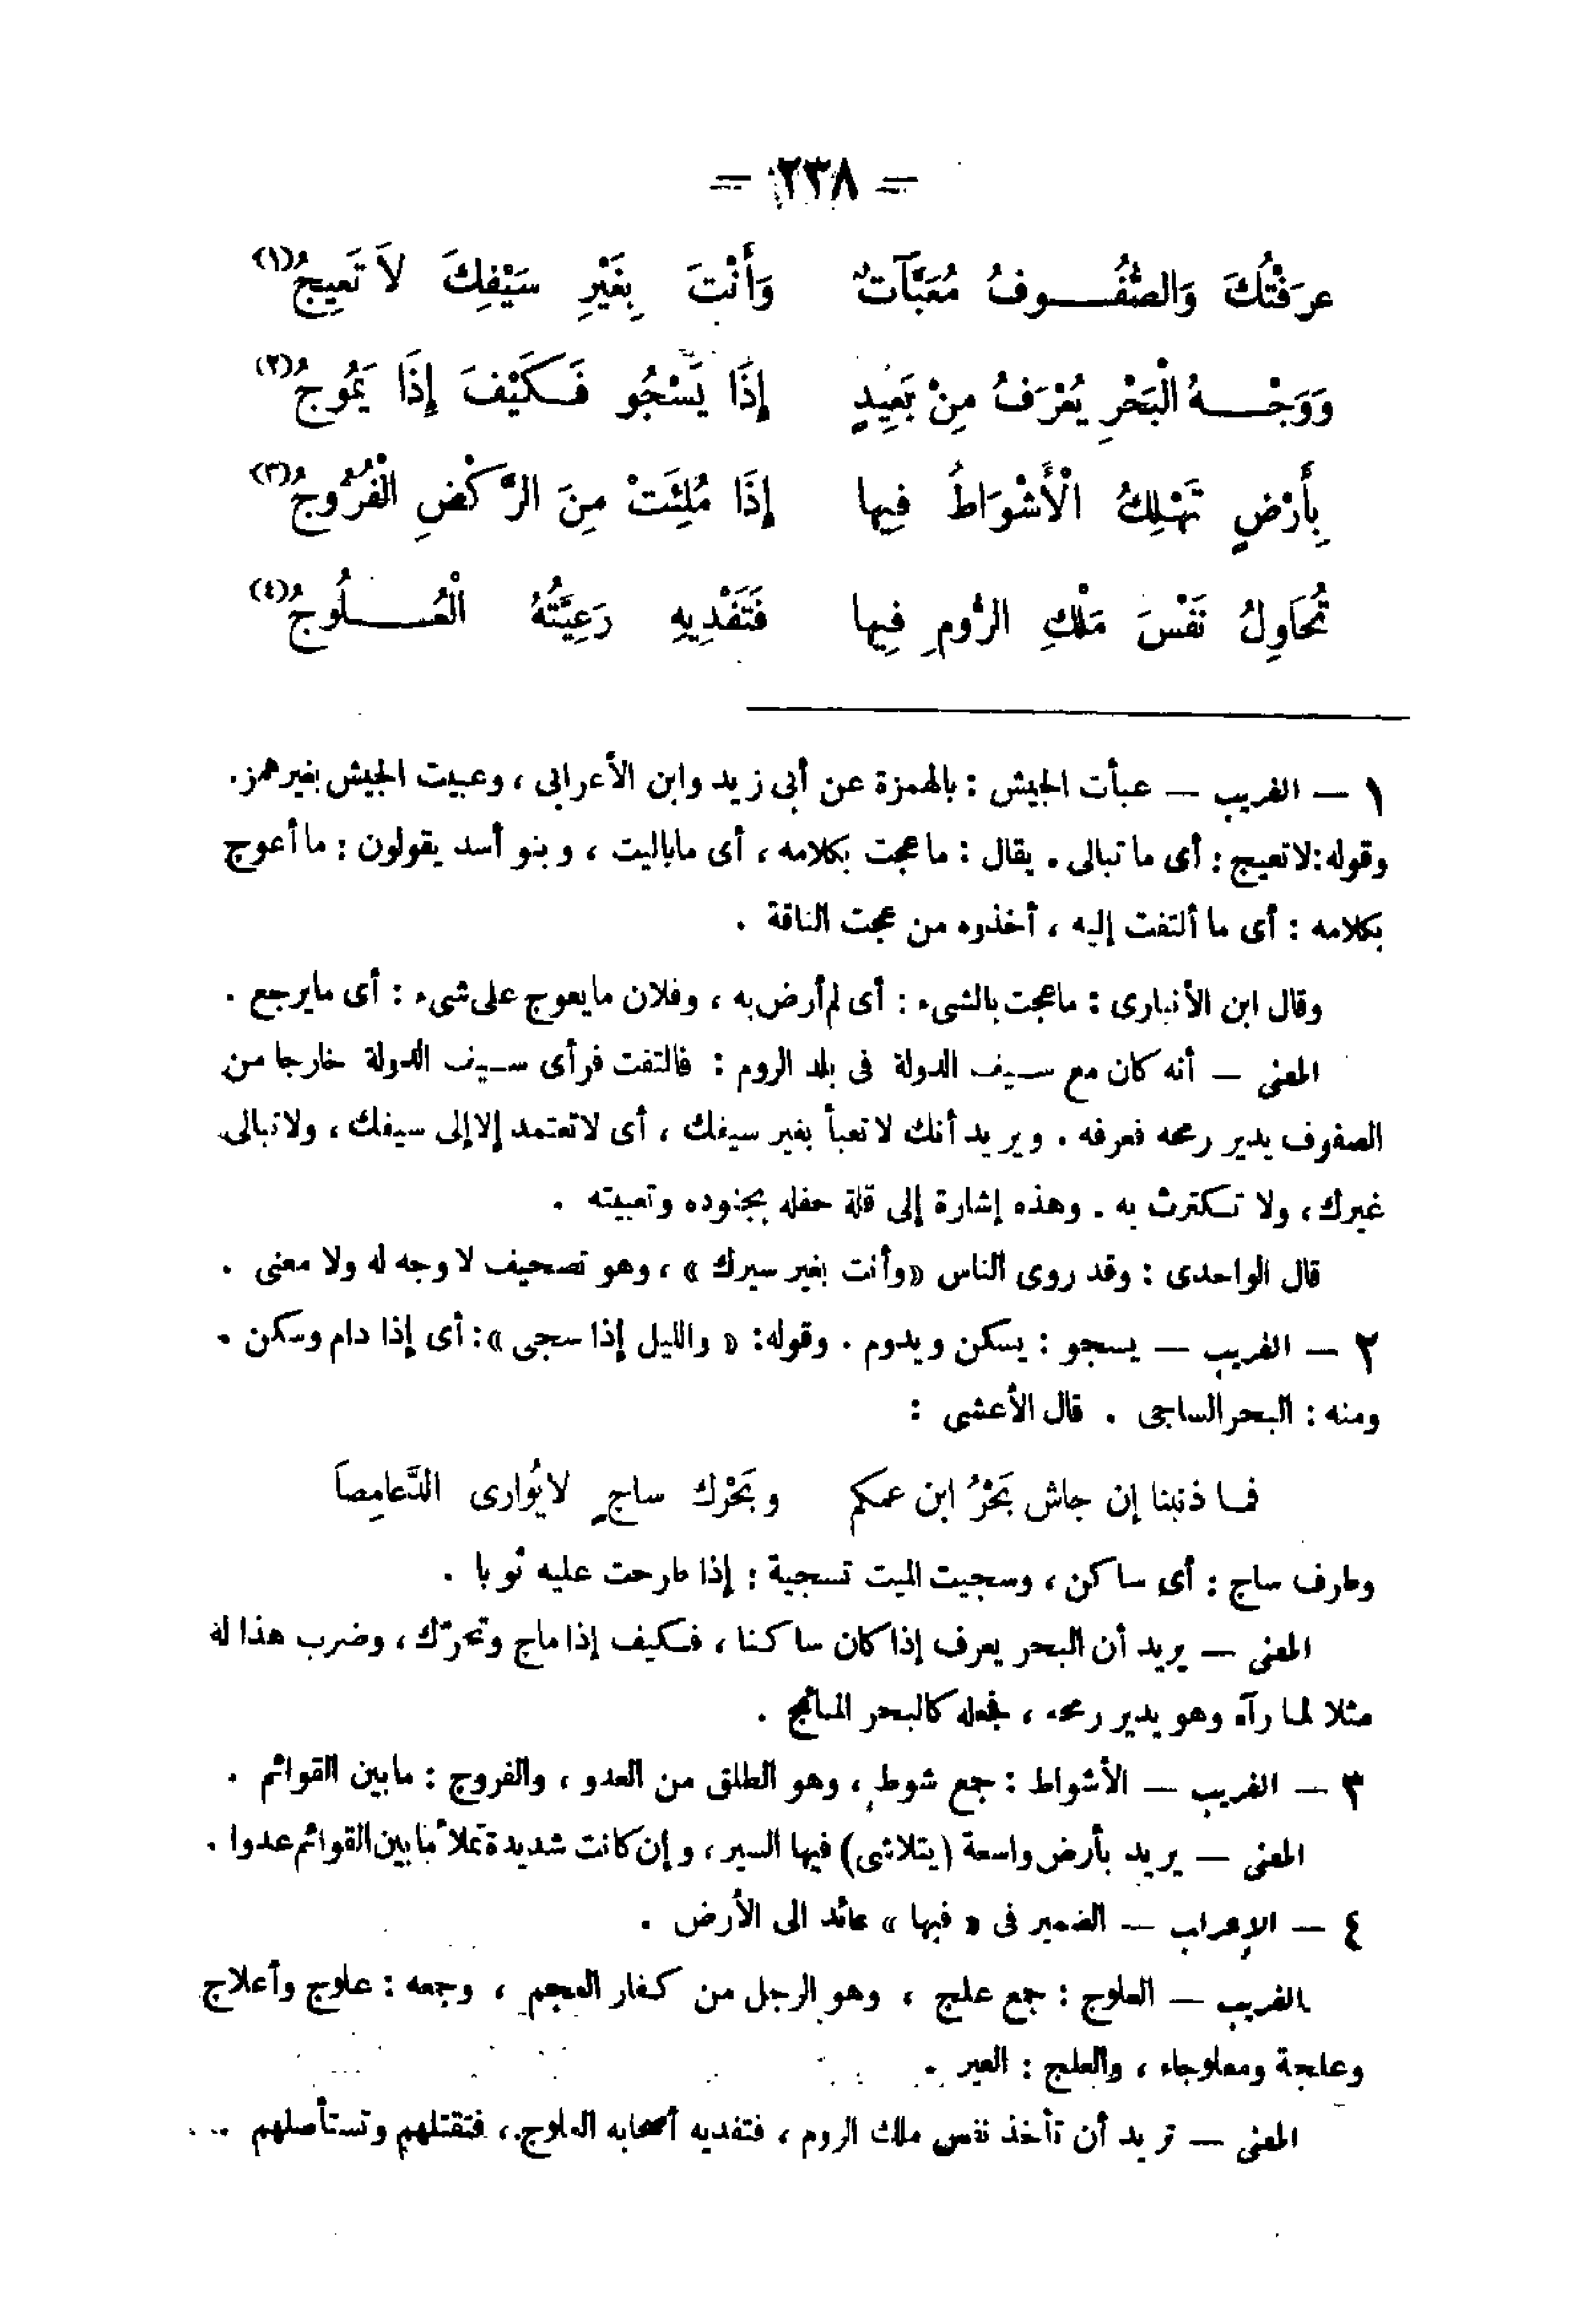 = ٢٣٨ =
عرَفْتُكَ وَالصُّفُـــوفُ مُعَبَّآتٌ وَأَنْتَ بِغَيْرِ سَيْفِكَ لاَ تَعِيجُ(١)
وَوَجْـــهُ الْبَحْرِ يُعْرَفُ مِنْ بَعِيدٍ إِذَا يَسْجُو فَـكَيْفَ إِذَا يَمُوجُ(٢)
بِأَرْضٍ تَهْلِكُ الْأَشْوَاطُ فِيها إِذَا مُلِئَتْ مِنَ الرَّكْضِ الْفُرُوجُ(٣)
تُحَاوِلُ نَفْسَ مَلْكِ الرُّومِ فِيها فَتَفْدِيهِ رَعِيَّتُهُ الْعُـــلُوجُ(٤)
١ — الغريب — عبأت الجيش : بالهمزة عن أبى زيد وابن الأعرابى ، وعبيت الجيش بغير همز.
وقوله:لاتعيج : أى ما تبالى . يقال : ما عجت بكلامه ، أى ماباليت ، وبنو أسد يقولون : ما أعوج
بكلامه : أى ما ألتفت إليه ، أخذوه من عجت الناقة .
وقال ابن الأنبارى : ماعجت بالشىء : أى لم أرض به ، وفلان ما يعوج على شىء : أى مايرجع .
المعنى — أنه كان مع سـيف الدولة فى بلد الروم : فالتفت فرأى سـيف الدولة خارجا من
الصفوف يدير رمحه فعرفه . ويريد أنك لا تعبأ بغير سيفك ، أى لاتعتمد إلا إلى سيفك ، ولاتبالى
غيرك ، ولا تـكترث به . وهذه إشارة إلى قلة حفله بجنوده وتعبيته .
قال الواحدى : وقد روى الناس «وأنت بغير سيرك » ، وهو تصحيف لا وجه له ولا معنى .
٢ — الغريب — يسجو : يسكن ويدوم . وقوله: « والليل إذا سجى »: أى إذا دام وسكن .
ومنه : البحر الساجى . قال الأعشى :
فما ذنبنا إن جاش بَحْرُ ابن عمكم وبَحْرك ساجٍ لايُوارى الدَّعامِصاَ
وطرف ساج : أى ساكن ، وسجيت الميت تسجية : إذا طرحت عليه ثوبا .
المعنى — يريد أن البحر يعرف إذا كان ساكنا ، فـكيف إذا ماج وتحرّك ، وضرب هذا له
مثلا لما رآه وهو يدير رمحه ، فجعله كالبحر المائج .
٣ — الغريب — الأشواط : جمع شوط ، وهو الطلق من العدو ، والفروج : مابين القوائم .
المعنى — يريد بأرض واسعة (يتلاشى) فيها السير ، وإن كانت شديدة تملأ ما بين القوائم عدوا .
٤ — الإعراب — الضمير فى « فيها » عائد الى الأرض .
الغريب — العلوج : جمع علج ، وهو الرجل من كفار العجم ، وجمعه : علوج وأعلاج
وعلجة ومعلوجاء ، والعلج : العير .
المعنى — تريد أن تأخذ نفس ملك الروم ، فتفديه أصحابه العلوج ، فتقتلهم وتستأصلهم .